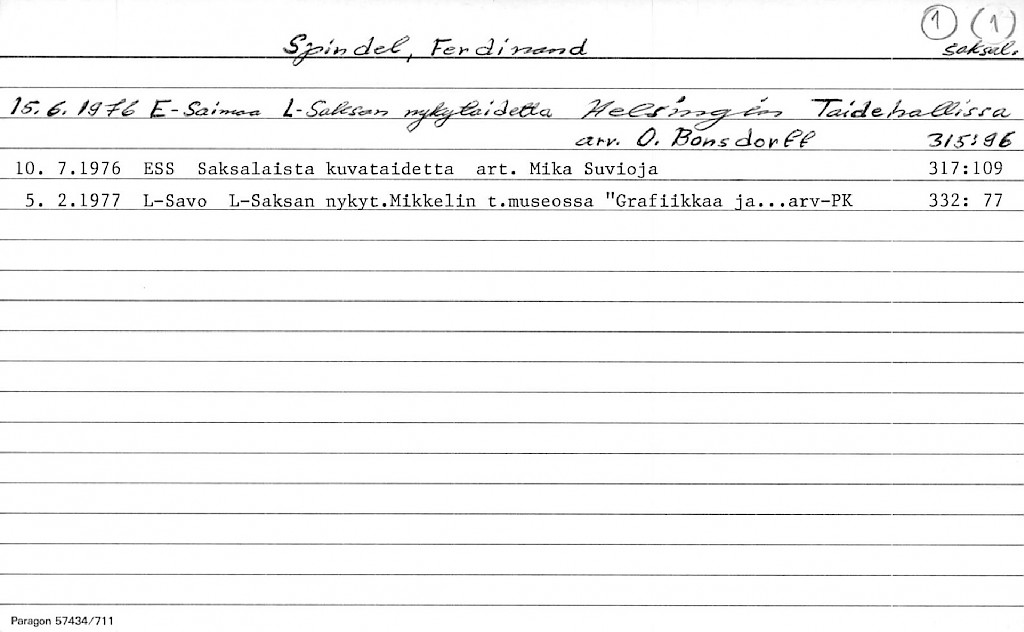 ① (1)
Spindel, Ferdinand saksal.
15.6.1976 E-Saimaa L-Saksan nykytaidetta Helsingin Taidehallissa
arv. O. Bonsdorff 315:96
10. 7.1976 ESS Saksalaista kuvataidetta art. Mika Suvioja 317:109
5. 2.1977 L-Savo L-Saksan nykyt.Mikkelin t.museossa "Grafiikkaa ja...arv-PK 332: 77
Paragon 57434/711